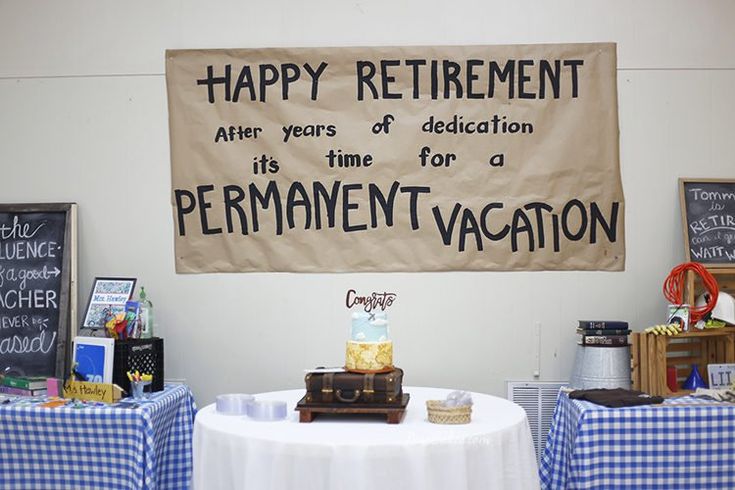 HAPPY RETIREMENT
After years of dedication
it's time for a
PERMANENT VACATION
the
FLUENCE
of a good
ACHER
EVER be
eased
Mrs. Hawley
Ms Hawley
Congrats
Tomm
is
RETIR
WATT W
LII